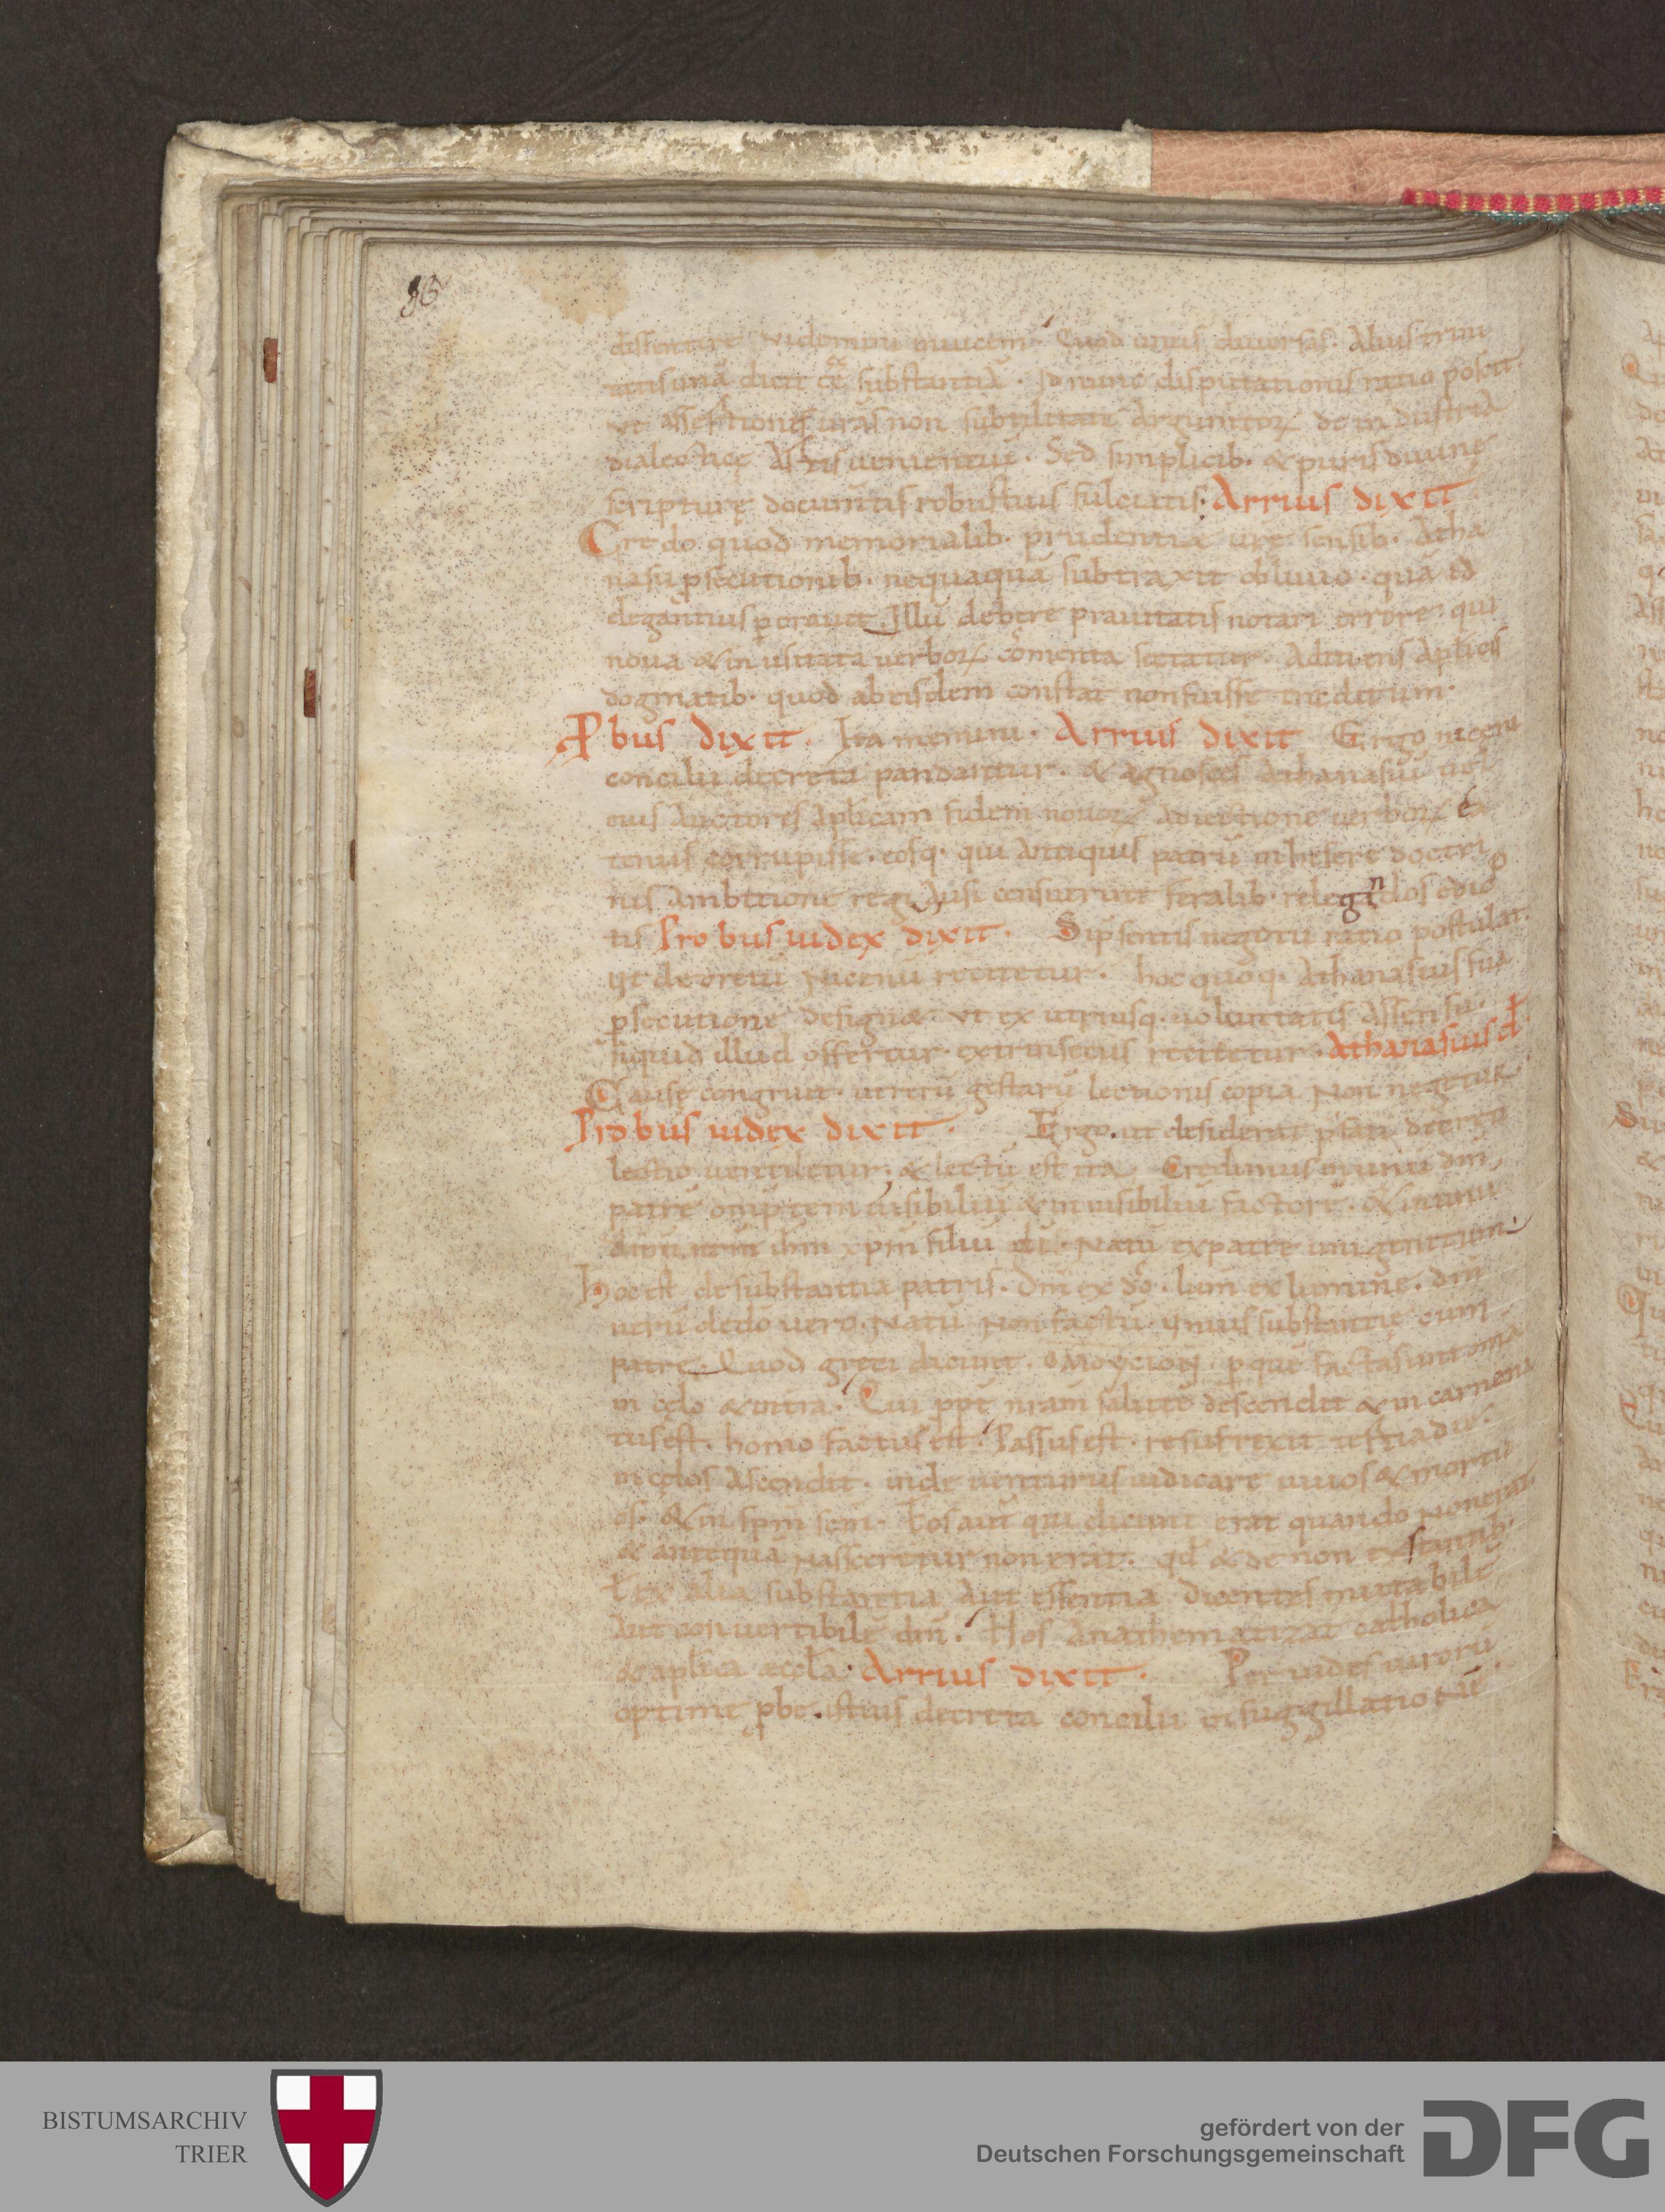 96
dissentire videmini inuicem. Quod unus diuersas. Alius trini
tatis unā dicit eē substantiā. Id nunc disputationis ratio poscit
ut assertiones uras non subtilitate argumtoꝝ de industria
dialecticę artis uenientiū. Sed simplicib. & puris diuinę
scripturę documtis robustius fulciatis. Arrius dixit
Credo quod memorialib. prudentiæ urę sensib. Atha
nasii psecutionib. nequaquā subtraxit obliuio. quā id
elegantius porauit. Illū debere prauitatis notari errore. qui
noua & inusitata uerboꝝ comenta sectatur. Adiciens aplicis
dogmatib. quod ab eisdem constat non fuisse creditum.
Pbus dixit. Ita memini. Arrius dixit Ergo niceni
concilii decreta pandantur. & agnosces Athanasiū uel
eius auctores aplicam fidem nouoꝝ adiectione uerboꝝ
tenus corrupisse. eosq. qui antiquis patrū inhesere doctri
nis ambitione regi ausi censuerunt feralib. relegandos edic
tis Probus iudex dixit. Si psentis negotii ratio postulat
ut decretū Nicenū recitetur. hoc quoq. Athanasius sua
psecutione designet. ut ex utriusq. uoluntatis assensu.
siquid illud offertur extrinsecus recitetur. Athanasius đ
Causę congruit. ut rerū gestarū lectionis copia non negetur
Probus iudex dixit. Ergo. ut desiderat psati decreti
lectio uentiletur; & lectū est ita. Credimus in unū dm
patrē omptem uisibiliū & inuisibiliū factorē. & in unū
dnm nrm ihm xpm filiū di. Natū ex patre unigenitum.
Hoc est de substantia patris. Dm ex do. lum ex lumine. dm
uerū de do uero. Natū non factū. unius substantie cum
patre. Quod greci dicunt. omoycion. p que facta sunt oma
in cęlo & in tra. Qui ppt nram salutē descendit & incarna
tus est. homo factus est. Passus est. resurrexit tertia die.
in cęlos ascendit. inde uenturus iudicare uiuos & mortu
os. & in spm scm. Eos aut qui dicunt erat quando non erat.
& antequā nasceretur non erat. qd & de non exstantib.
ł ex alia substantia aut essentia dicentes mutabilē
aut conuertibilē dm. Hos anathematizat catholica
& aplica æccla. Arrius dixit. Per uides uirorū
optime pbe. istius decreta concilii in suggillationē